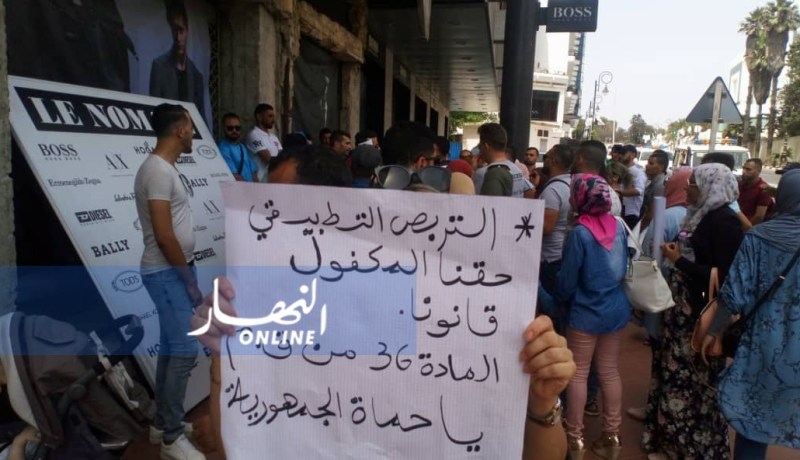 BOSS
LE NOM
BOSS
HUGO BOSS
A X
Ermenegildo Zegna
BALLY
DIESEL
BALLY
TOD'S
* التربص التطبيقي
حقنا المكفول
قانونا.
المادة 36 من
يا حماة الجمهورية
النهار
ONLINE